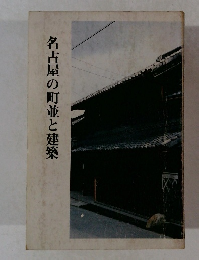 名古屋の町並と建築